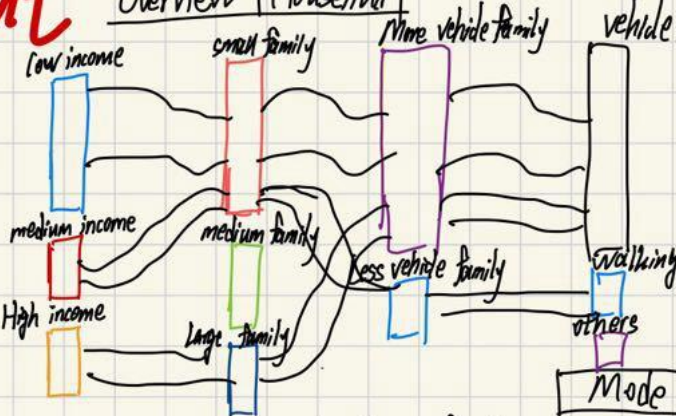 Overview Household
Low income
small family
More vehicle family
vehicle
medium income
medium family
Less vehicle family
Walking
High income
Large family
others
Mode